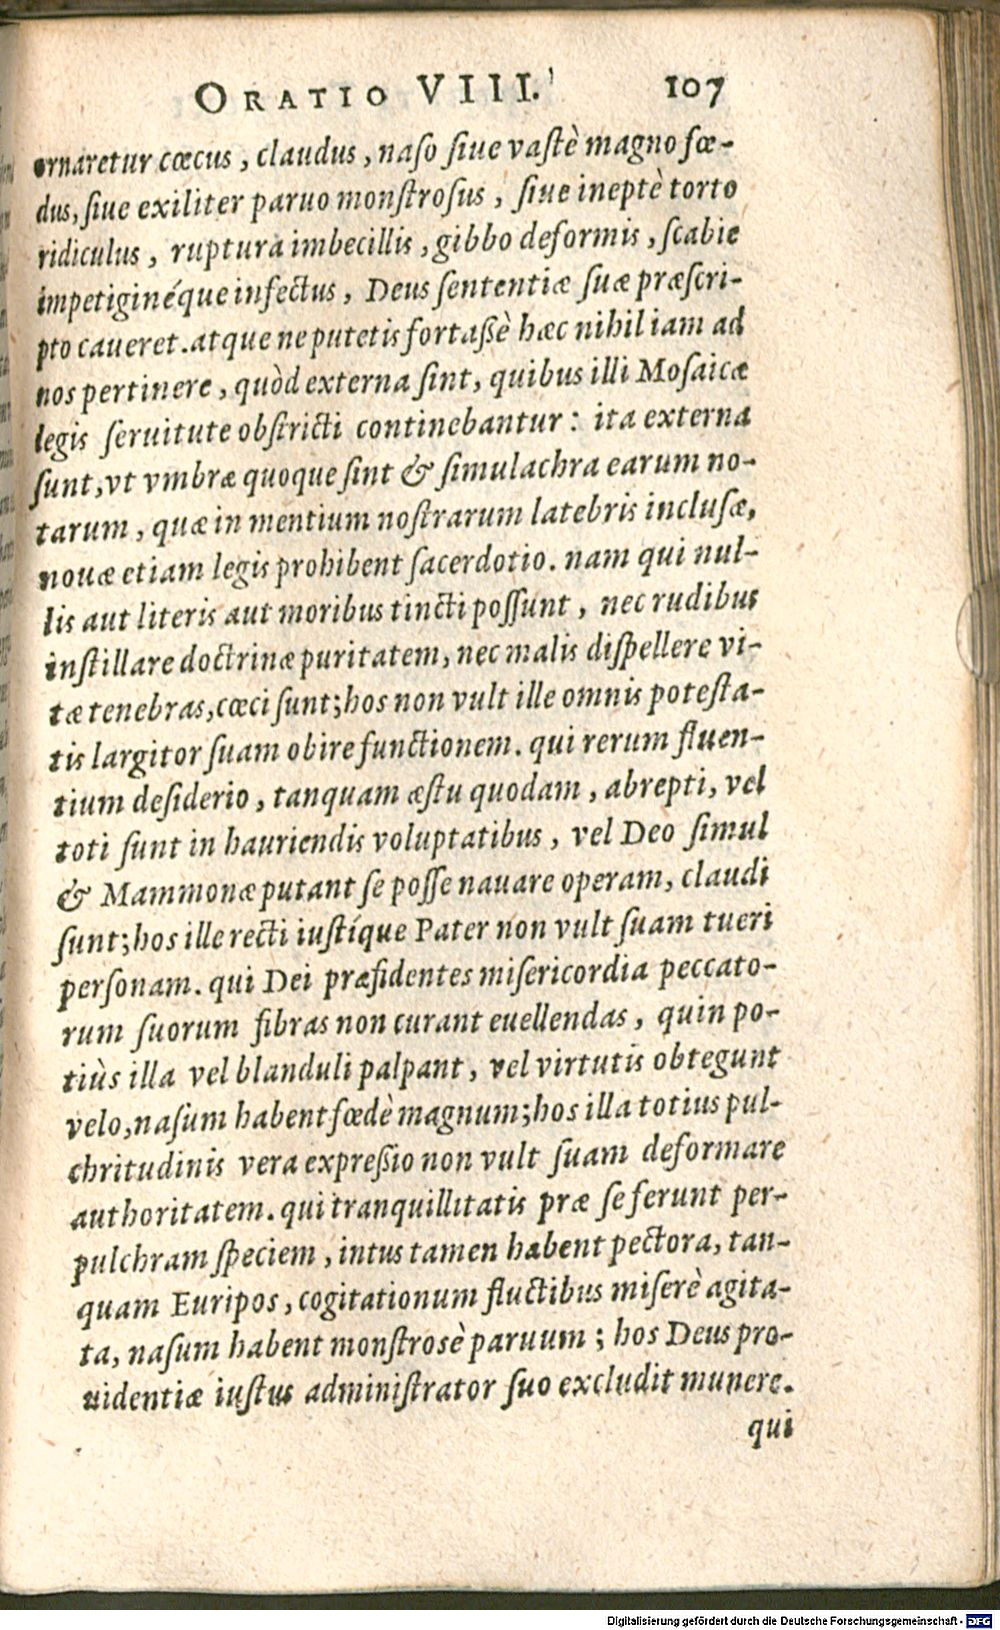 ORATIO VIII. 107
ornaretur cœcus, claudus, naso siue vastè magno fœ-
dus, siue exiliter paruo monstrosus, siue ineptè torto
ridiculus, ruptura imbecillis, gibbo deformis, scabie
impetiginéque infectus, Deus sententiæ suæ præscri-
pto caueret. atque ne putetis fortaßè hæc nihil iam ad
nos pertinere, quòd externa sint, quibus illi Mosaicæ
legis seruitute obstricti continebantur: ita externa
sunt, vt vmbræ quoque sint & simulachra earum no-
tarum, quæ in mentium nostrarum latebris inclusæ,
nouæ etiam legis prohibent sacerdotio. nam qui nul-
lis aut literis aut moribus tincti possunt, nec rudibus
instillare doctrinæ puritatem, nec malis dispellere vi-
tæ tenebras, cœci sunt; hos non vult ille omnis potesta-
tis largitor suam obire functionem. qui rerum fluen-
tium desiderio, tanquam æstu quodam, abrepti, vel
toti sunt in hauriendis voluptatibus, vel Deo simul
& Mammonæ putant se posse nauare operam, claudi
sunt; hos ille recti iustíque Pater non vult suam tueri
personam. qui Dei præfidentes misericordia peccato-
rum suorum fibras non curant euellendas, quin po-
tiùs illa vel blanduli palpant, vel virtutis obtegunt
velo, nasum habent fœdè magnum; hos illa totius pul-
chritudinis vera expreßio non vult suam deformare
authoritatem. qui tranquillitatis præ se ferunt per-
pulchram speciem, intus tamen habent pectora, tan-
quam Euripos, cogitationum fluctibus miserè agita-
ta, nasum habent monstrosè paruum; hos Deus pro-
uidentiæ iustus administrator suo excludit munere.
qui
Digitalisierung gefördert durch die Deutsche Forschungsgemeinschaft - DFG